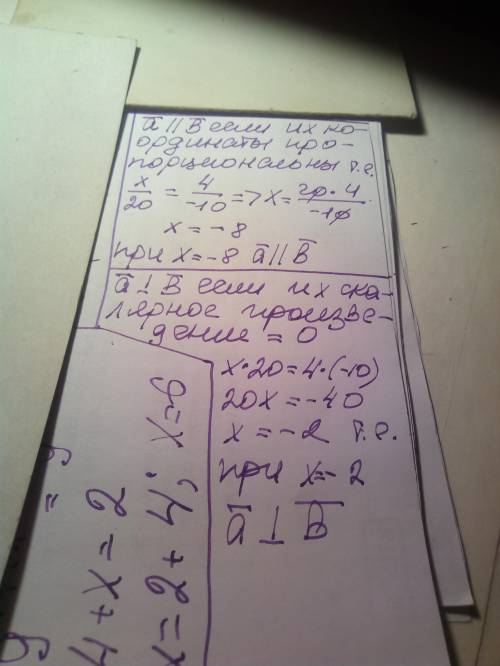 a̅ || B̅ если их ко-
ординаты про-
порциональны т.е.
x/20 = 4/-10 => x = 20·4/-10
x = -8
при x = -8 a̅ || B̅
a̅ ⊥ B̅ если их ска-
лярное произве-
дение = 0
x·20=4·(-10)
20x = -40
x = -2 т.е.
при x=-2
a̅ ⊥ B̅
4+x=2
x=2+4; x=6